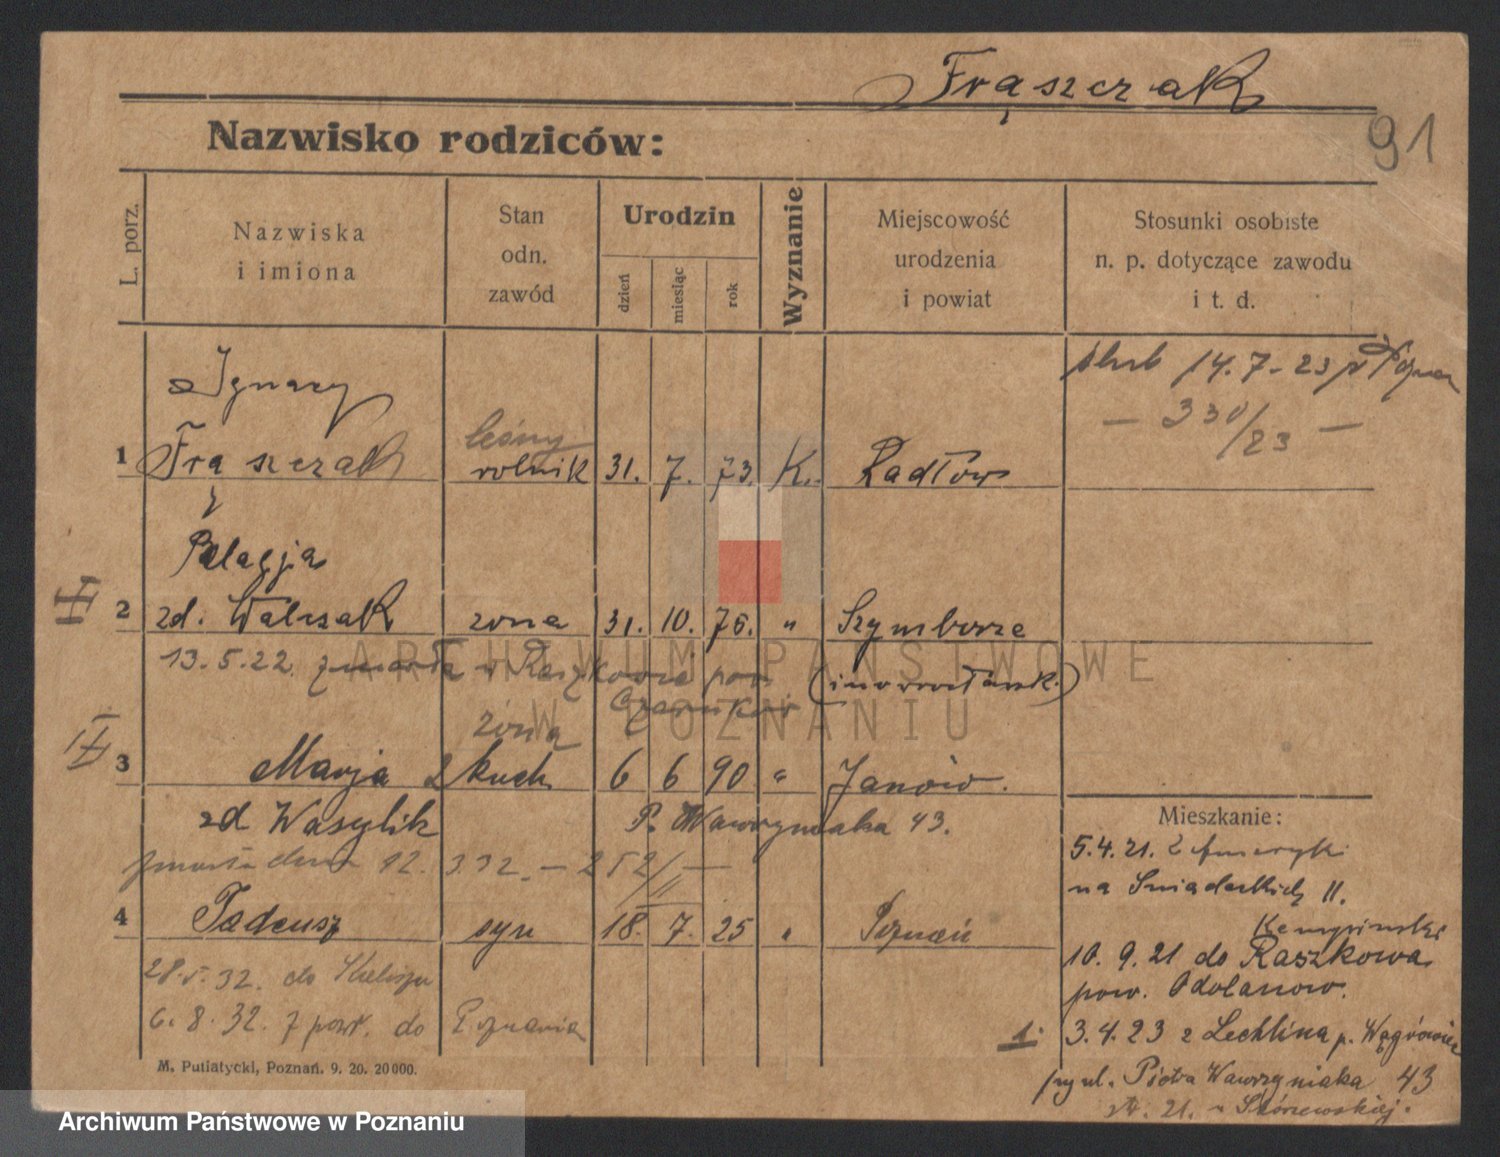 Frąszczak
91
Nazwisko rodziców:
L. porz.
Nazwiska
i imiona
Stan
odn.
zawód
Urodzin
dzień
miesiąc
rok
Wyznanie
Miejscowość
urodzenia
i powiat
Stosunki osobiste
n. p. dotyczące zawodu
i t. d.
ślub 14.7-23 w
— 330/23 —
Ignacy
leśny
1 Frąszczak rolnik 31. 7. 73. K. Radłów
Pelagja
II 2 zd. Walczak żona 31. 10. 76. " Szymborze
13.5.22 zmarła w pow. (inowrocławsk.)
Czarnków
żona
II 3 Marja kuch 6 6 90 " Janów.
zd Wasylik P. Wawrzyniaka 43.
zmarła dnia 12. 3.32. — 252/II —
4 Tadeusz syn 18. 7. 25 " Poznań
28.5.32. do
6.8.32. z powr. do Poznania
Mieszkanie:
5.4.21. z
na Śniadeckich 11.
10.9.21 do Raszkowa
pow. Odolanow.
1. 3.4.23 z Lechlina p. Wągrówiec
przy ul. Piotra Wawrzyniaka 43
21. Skórzewskiej.
M. Putiatycki, Poznań. 9. 20. 20000.
ARCHIWUM PAŃSTWOWE
W POZNANIU
Archiwum Państwowe w Poznaniu